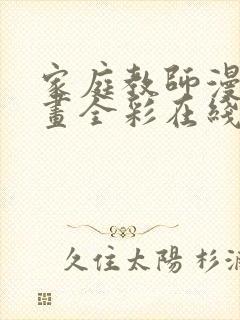 家庭教師漫
畫全彩在綫
久住太陽 杉